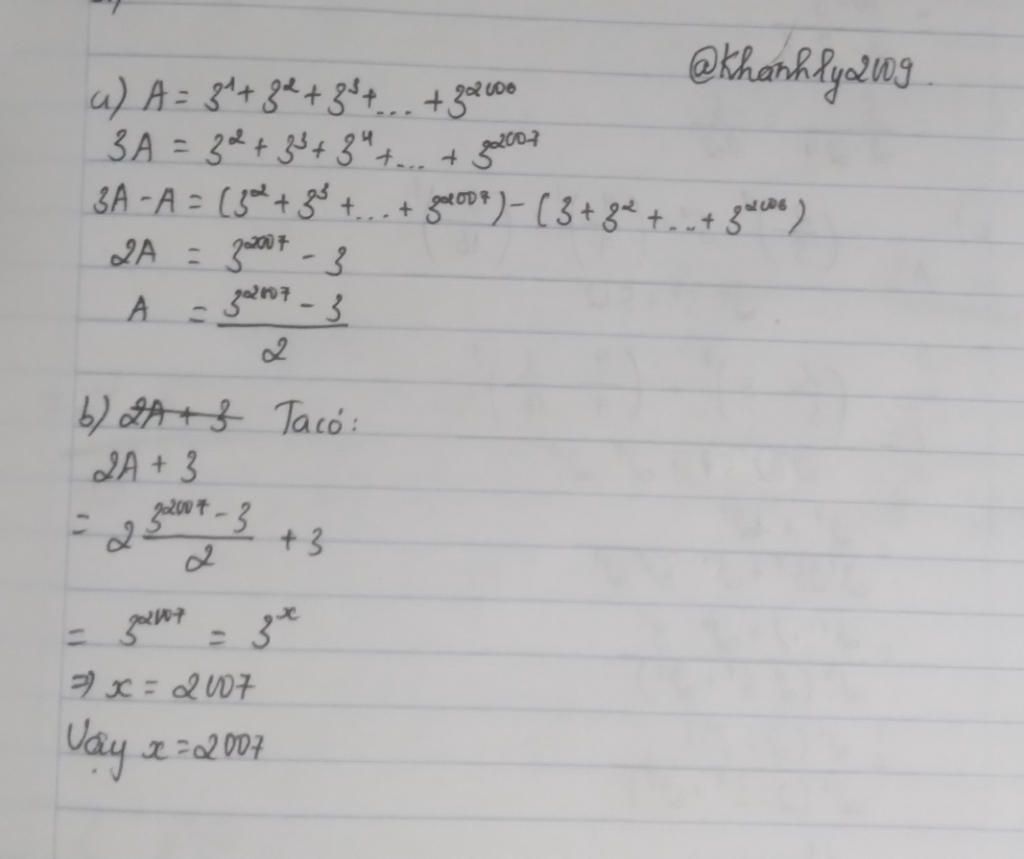 @Khanhly2009
a) A = 3¹ + 3² + 3³ + ... + 3²⁰⁰⁶
3A = 3² + 3³ + 3⁴ + ... + 3²⁰⁰⁷
3A - A = (3² + 3³ + ... + 3²⁰⁰⁷) - (3 + 3² + ... + 3²⁰⁰⁶)
2A = 3²⁰⁰⁷ - 3
A = (3²⁰⁰⁷ - 3)/2
b) 2A + 3 Ta có:
2A + 3
= 2 (3²⁰⁰⁷ - 3)/2 + 3
= 3²⁰⁰⁷ = 3ˣ
⇒ x = 2007
Vậy x = 2007